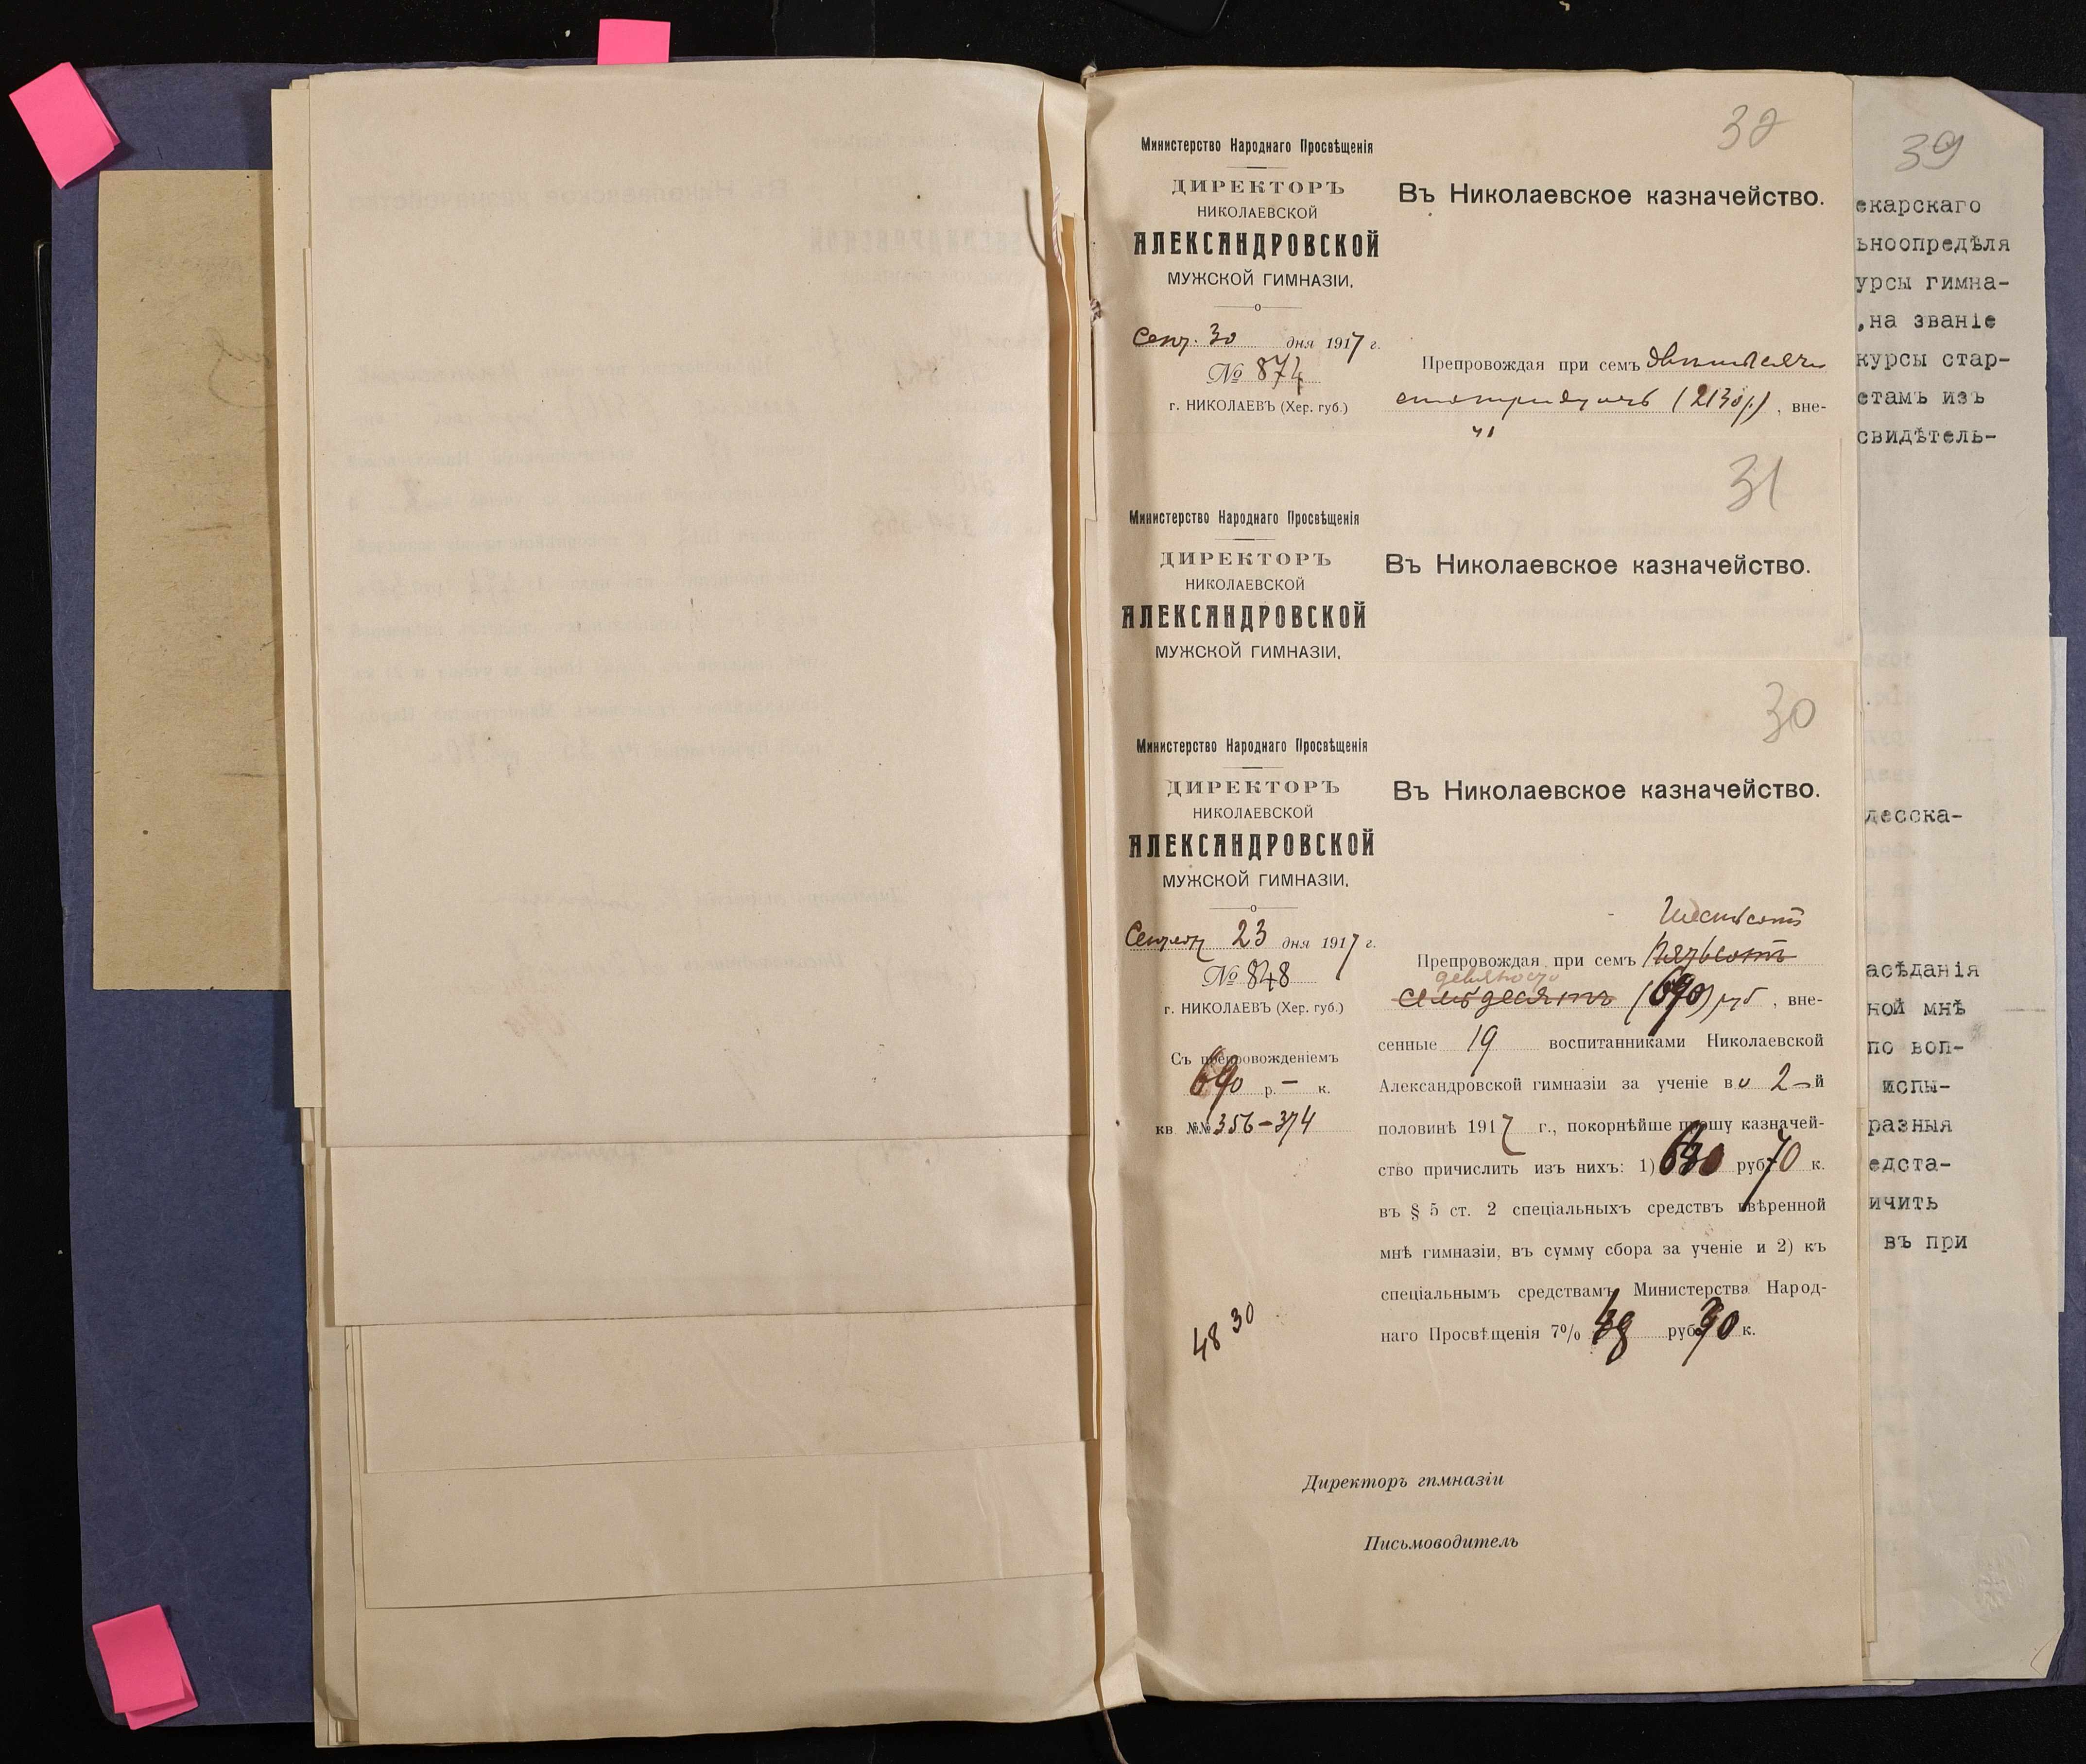 32
Министерство Народнаго Просвѣщенія
ДИРЕКТОРЪ
НИКОЛАЕВСКОЙ
АЛЕКСАНДРОВСКОЙ
МУЖСКОЙ ГИМНАЗІИ.
Въ Николаевское казначейство.
Сент. 30 дня 1917 г.
№ 874
г. НИКОЛАЕВЪ (Хер. губ.)
Препровождая при семъ двѣ тысячи
сто тридцать (2130 р.), вне-
31
Министерство Народнаго Просвѣщенія
ДИРЕКТОРЪ
НИКОЛАЕВСКОЙ
АЛЕКСАНДРОВСКОЙ
МУЖСКОЙ ГИМНАЗІИ.
Въ Николаевское казначейство.
30
Министерство Народнаго Просвѣщенія
ДИРЕКТОРЪ
НИКОЛАЕВСКОЙ
АЛЕКСАНДРОВСКОЙ
МУЖСКОЙ ГИМНАЗІИ.
Въ Николаевское казначейство.
23 дня 1917 г.
№ 848
г. НИКОЛАЕВЪ (Хер. губ.)
Съ препровожденіемъ
690 р. — к.
кв. №№ 356-374
48 30
Шестьсотъ
Препровождая при семъ Пятьсотъ
девяносто
семьдесятъ (690) руб, вне-
сенные 19 воспитанниками Николаевской
Александровской гимназіи за ученіе во 2-й
половинѣ 1917 г., покорнѣйше прошу казначей-
ство причислить изъ нихъ: 1) руб. 70 к.
въ § 5 ст. 2 спеціальныхъ средствъ ввѣренной
мнѣ гимназіи, въ сумму сбора за ученіе и 2) къ
спеціальнымъ средствамъ Министерства Народ-
наго Просвѣщенія 7% 48 руб. 30 к.
Директоръ гимназіи
Письмоводитель
39
екарскаго
ьноопредѣля
урсы гимна-
,на званіе
курсы стар-
етамъ изъ
свидѣтель-
десска-
асѣданія
ной мнѣ
по воп-
испы-
разныя
едста-
ичить
въ при